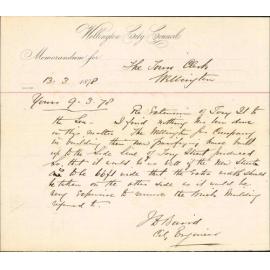 Wellington City Council
Memorandum for
The Town Clerk
13.3.1878
Wellington
Yours 9-3-78
Re Extension of Tory St to
the Sea - I find nothing has been done
in this matter. The Wellington Gas Company
in building their new premises have built
up to the side line of Tory Street produced
so, that if would be as side of the new Street
is to be 66ft wide that the extra width should
be taken on the other side as it would be
very expensive to remove the Brick Building
referred to.
J D Baird
City Engineer